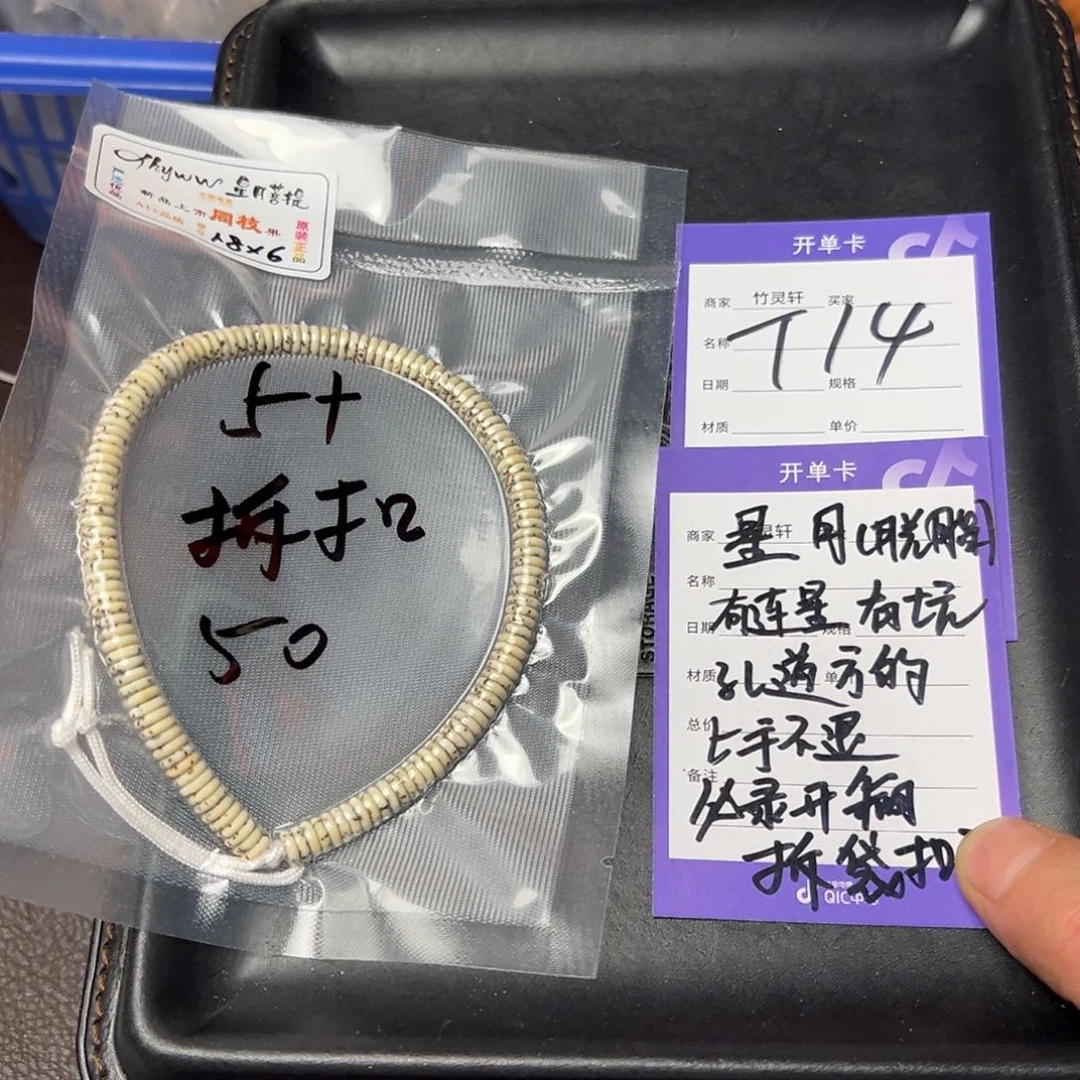 星月菩提
严选优品
新品上市 同枝果
A1+品质
原装正品
18×6
5+
拆扣
50
开单卡
商家 竹灵轩 买家
名称
T14
日期 规格
材质 单价
开单卡
商家
星月(脱胸)
名称
有连星 有坑
日期 规格
孔道方的
材质 单
上手不退
总价
备注
必录开箱
拆袋扣
STORAGE